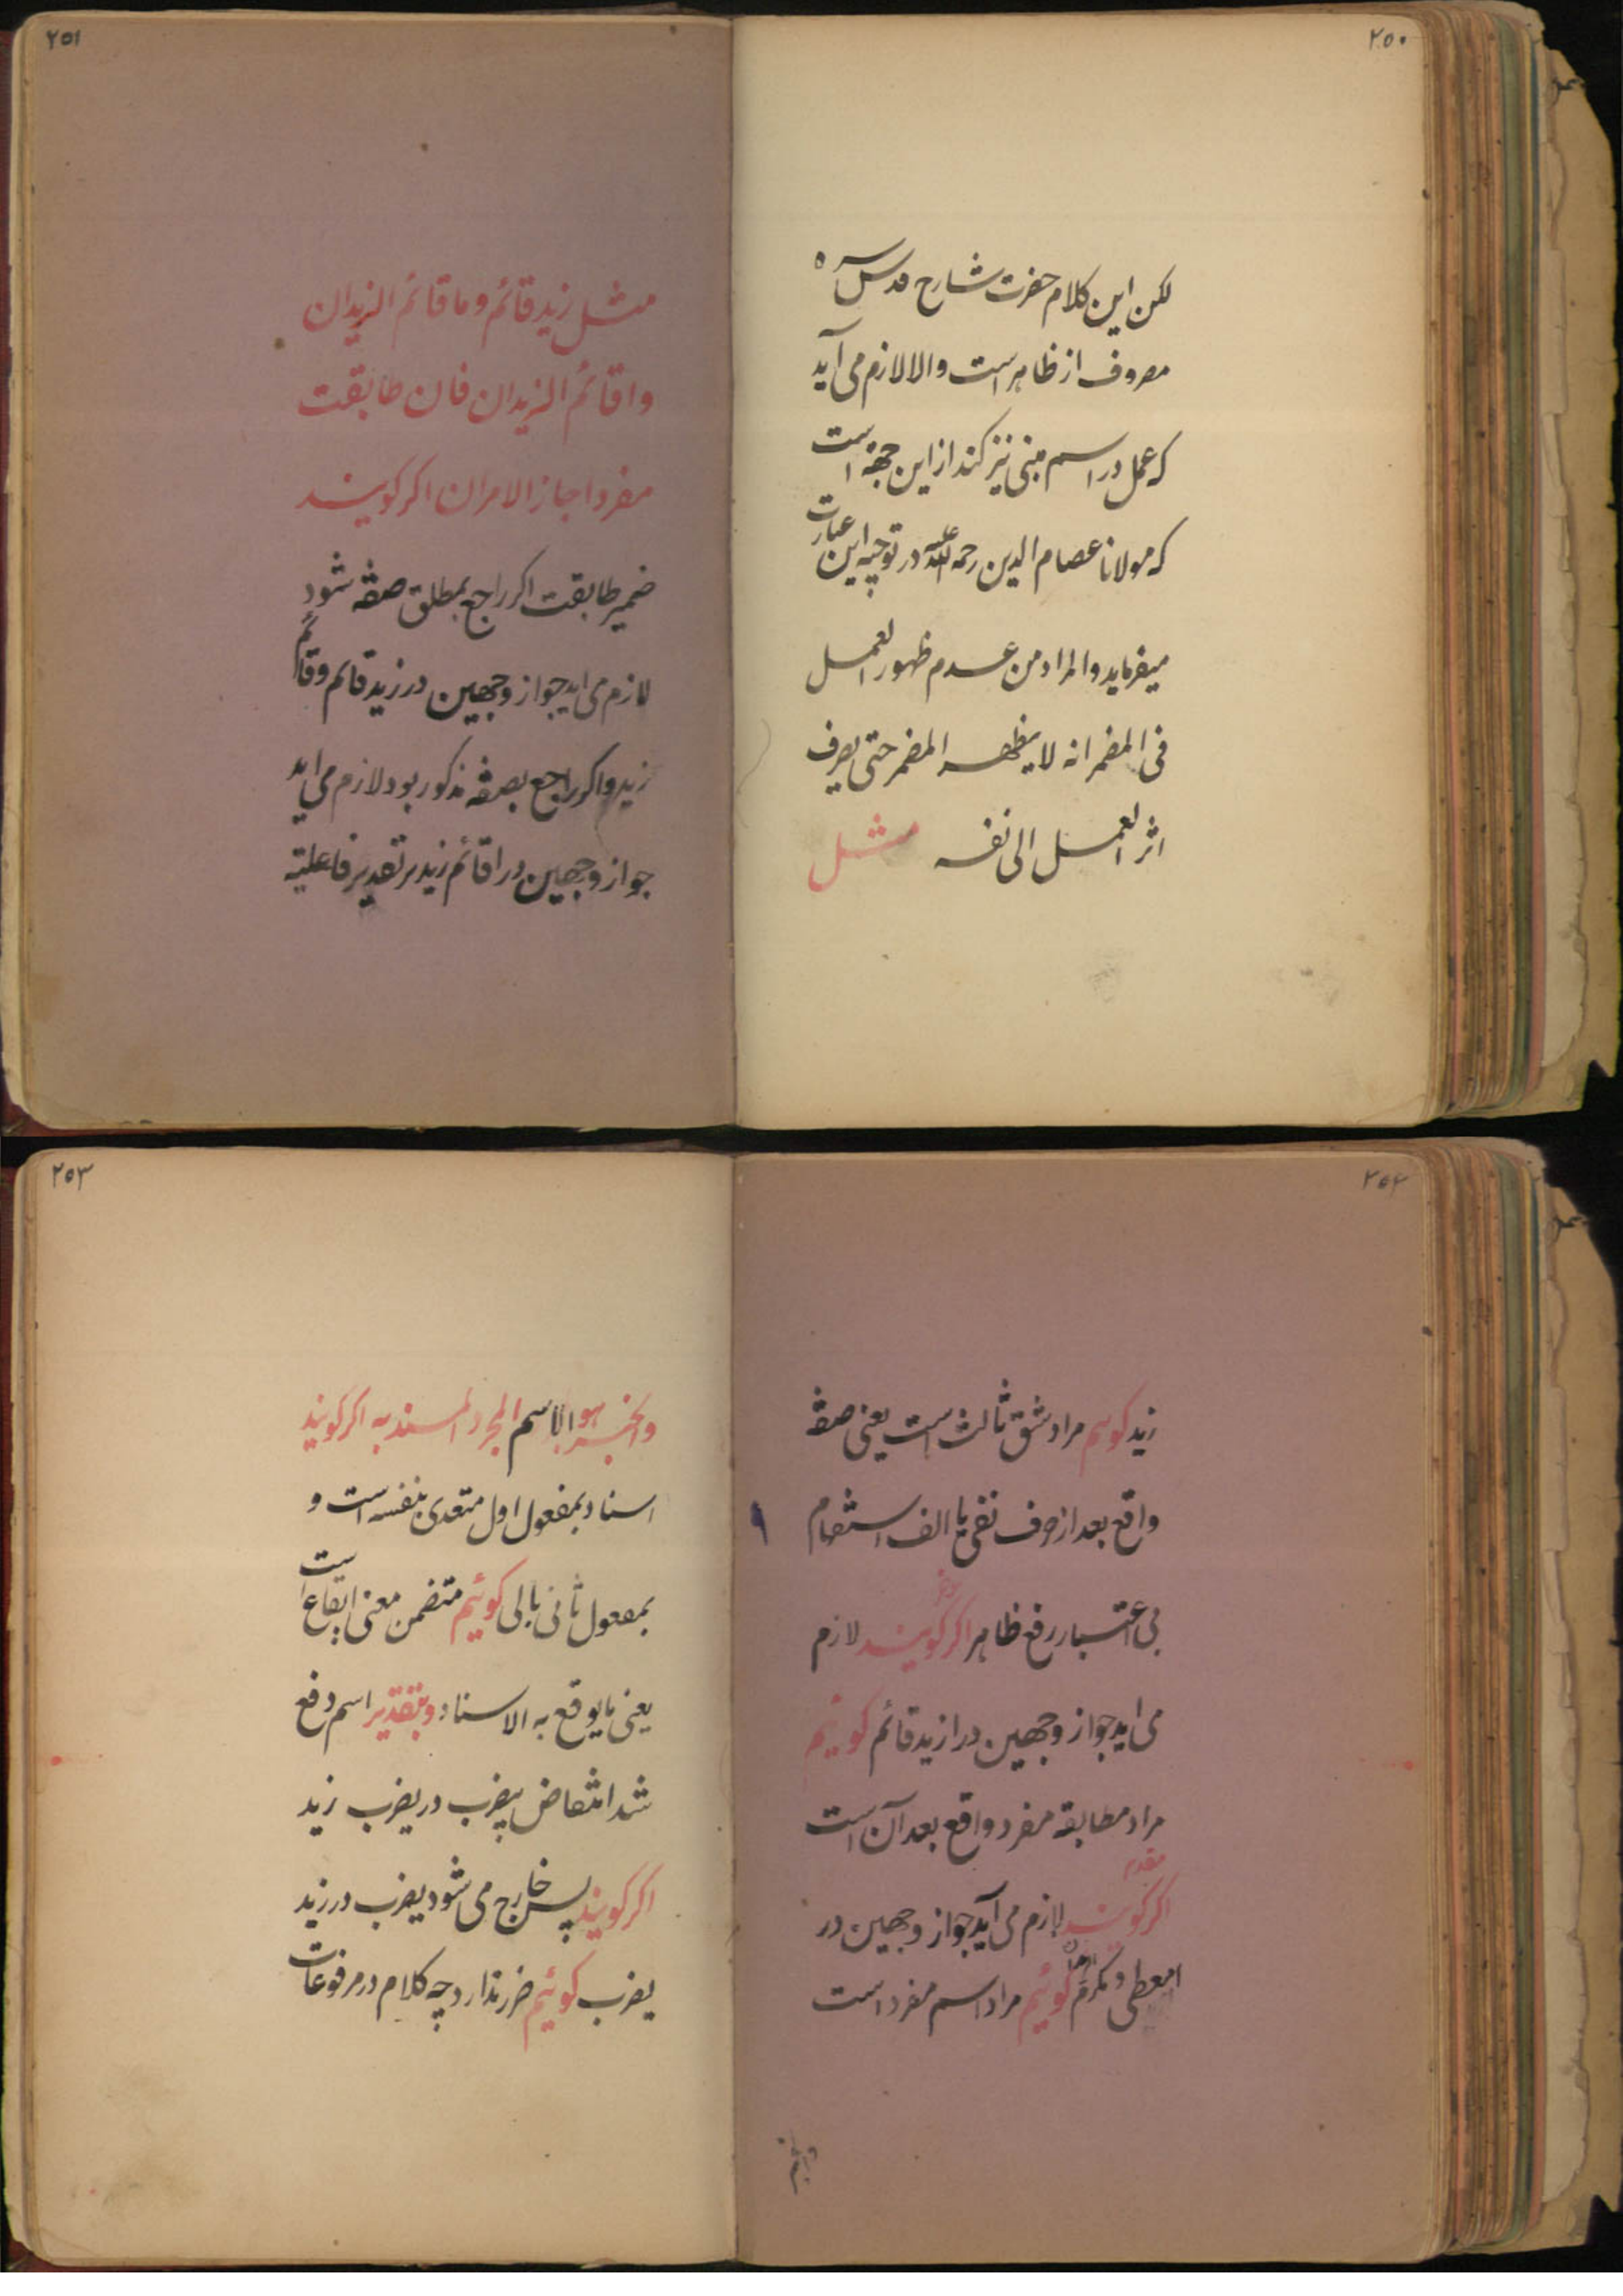 ۲۵۰
لکن این کلام حضرت شارح قدس سره
مصروف از ظاهر است والا لازم می آید
که عمل در اسم مبنی نیز کند از این جهة است
که مولانا عصام الدین رحمه الله علیه در توجیه این عبارت
میفرماید والمراد من عدم ظهور العمل
فی المضمر انه لا یظهر المضمر حتی یصرف
اثر العمل الی نفسه مثل
۲۵۱
مثل زید قائم وما قائم الزیدان
واقائم الزیدان فان طابقت
مفردا جاز الامران اکر کویند
ضمیر طابقت اکر راجع بمطلق صفة شود
لازم می اید جواز وجهین در زید قائم وقائم
زید واکر راجع بصفة مذکور بود لازم می اید
جواز وجهین در اقائم زید بر تقدیر فاعلیة
۲۵۲
زید کویم مراد شق ثالث است یعنی صفة
واقع بعد از حرف نفی یا الف استفهام
بی اعتبار رفع ظاهر اکر کویند لازم
می اید جواز وجهین در ازید قائم کوئیم
مراد مطابقة مفرد واقع بعد آن است
مقدم
اکر کویند لازم می آید جواز وجهین در
امعطی درهم کوئیم مراد اسم مفرد است
۲۵۳
والخبر هو الاسم المجرد المسند به اکر کویند
اسناد بمفعول اول متعدی بنفسه است و
بمفعول ثانی بالی کوئیم متضمن معنی ایقاع است
یعنی ما یوقع به الاسناد وبتقدیر اسم دفع
شد انتقاض بیضرب در یضرب زید
اکر کویند پس خارج می شود یضرب در زید
یضرب کوئیم ضرر ندارد چه کلام در مرفوعات